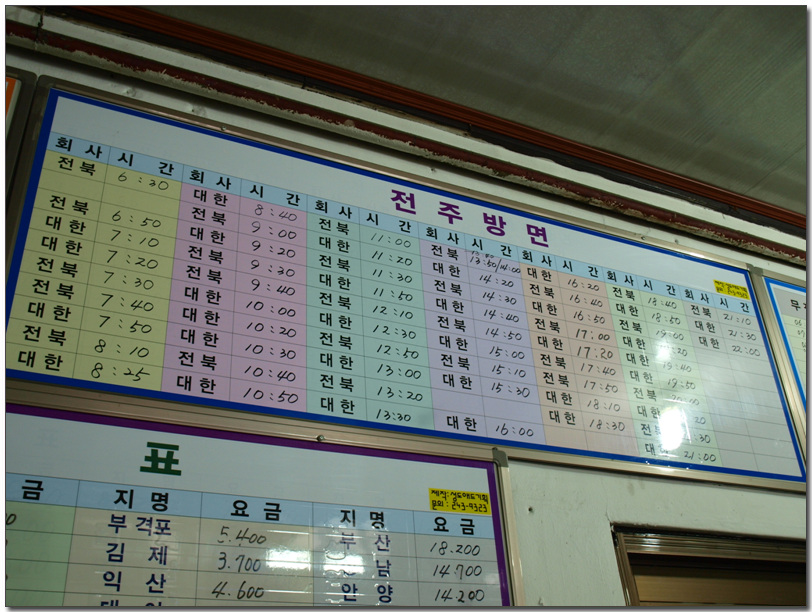 전주방면
회사 시간 회사 시간 회사 시간 회사 시간 회사 시간 회사 시간 회사 시간
전북 6:30
전북 6:50
대한 7:10
대한 7:20
전북 7:30
전북 7:40
대한 7:50
전북 8:10
대한 8:25
대한 8:40
전북 9:00
대한 9:20
전북 9:30
전북 9:40
대한 10:00
대한 10:20
10:30
전북 10:40
대한 10:50
전북 11:00
대한 11:20
전북 11:30
전북 11:50
대한 12:10
대한 12:30
전북 12:50
전북 13:00
대한 13:20
대한 13:30
전북 13:50/14:00
대한 14:20
전북 14:30
대한 14:40
전북 14:50
대한 15:00
전북 15:10
대한 15:30
대한 16:00
대한 16:20
전북 16:40
대한 16:50
전북 17:00
대한 17:20
전북 17:40
전북 17:50
대한 18:10
대한 18:30
전북 18:40
대한 18:50
전북 19:00
대한
19:40
19:50
전북 20:00
대한
전북
대한 21:00
전북 21:10
대한 21:30
대한 22:00
표
금 지명 요금 지명 요금
부격포 5.400 부산 18.200
김제 3.700 14.700
익산 4.600 안양 14.200
243-9323